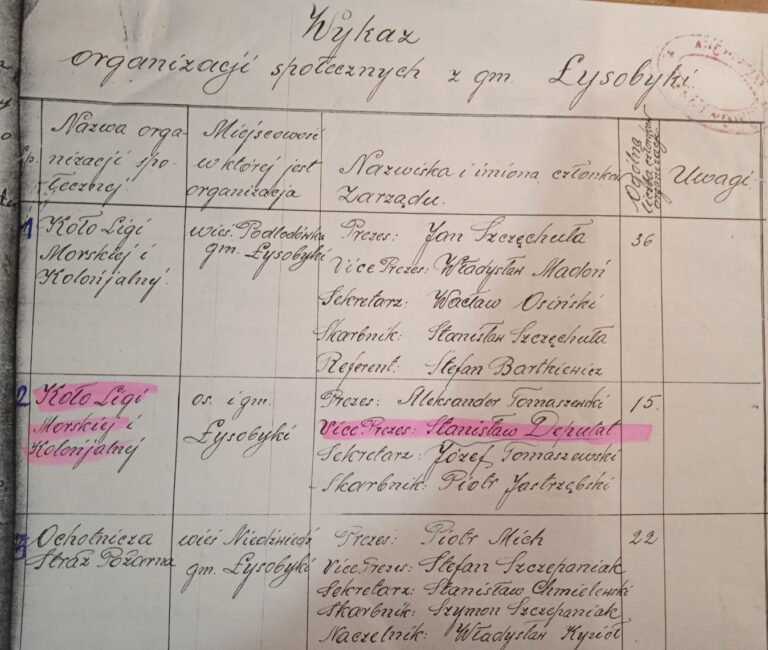 Wykaz
organizacji społecznych z gm. Łysobyki
Lp.
Nazwa orga-
nizacji spo-
łecznej
Miejscowość
w której jest
organizacja
Nazwiska i imiona członków
Zarządu.
Ogólna
liczba członków
Uwagi
1
Koło Ligi
Morskiej i
Kolonjalnej
wieś Podlodówka
gm. Łysobyki
Prezes: Jan Szczęchuła
Vice Prezes: Władysław Madoń
Sekretarz: Wacław Osiński
Skarbnik: Stanisław Szczęchuła
Referent: Stefan Bartkiewicz
36
2
Koło Ligi
Morskiej i
Kolonjalnej
os. i gm.
Łysobyki
Prezes: Aleksander Tomaszewski
Vice Prezes: Stanisław Deputat
Sekretarz: Józef Tomaszewski
Skarbnik: Piotr Jastrzębski
15.
3
Ochotnicza
Straż Pożarna
wieś Niedźwiedź
gm. Łysobyki
Prezes: Piotr Mich
Vice Prezes: Stefan Szczepaniak
Sekretarz: Stanisław Chmielewski
Skarbnik: Szymon Szczepaniak
Naczelnik: Władysław Kyzioł
22